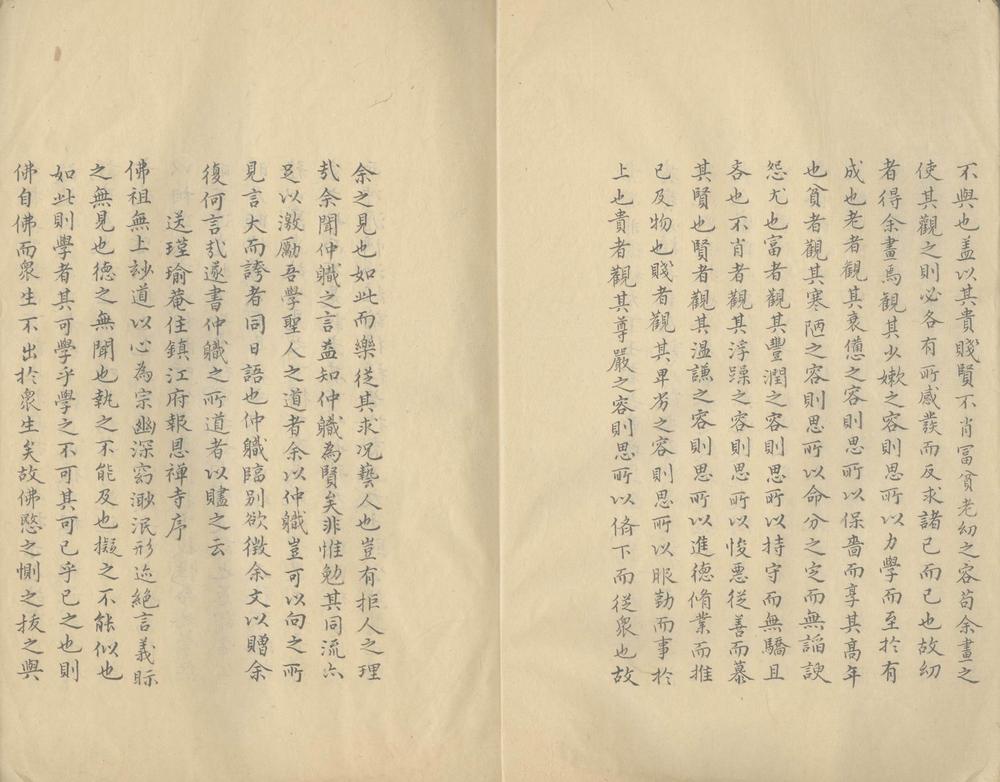 不與也盖以其貴賤賢不肖冨貧老幼之容苟余畫之
使其觀之則必各有所感發而反求諸已而已也故幼
者得余畫焉觀其少嫰之容則思所以力學而至扵有
成也老者觀其衰憊之容則思所以保嗇而享其高年
也貧者觀其寒陋之容則思所以命分之定而無謟諛
怨尤也富者觀其豐潤之容則思所以持守而無驕且
吝也不肖者觀其浮躁之容則思所以悛悪從善而慕
其賢也賢者觀其温謙之容則思所以進德脩業而推
已及物也賤者觀其卑劣之容則思所以服勤而事扵
上也貴者觀其尊嚴之容則思所以脩下而從衆也故
余之見也如此而樂從其求况藝人也豈有拒人之理
㢤余聞仲軄之言益知仲軄為賢矣非惟勉其同流六
足以激勵吾學聖人之道者余以仲軄豈可以向之所
見言大而誇者同日語也仲軄臨别欲徴余文以贈余
復何言㢤遂書仲軄之所道者以贐之云
送瑾瑜菴住鎮江府報恩禅寺序
佛祖無上玅道以心為宗幽深窈渺泯形迹絶言義眎
之無見也德之無聞也執之不能及也擬之不能似也
如此則學者其可學乎學之不可其可已乎已之也則
佛自佛而衆生不出扵衆生矣故佛愍之惻之抜之與